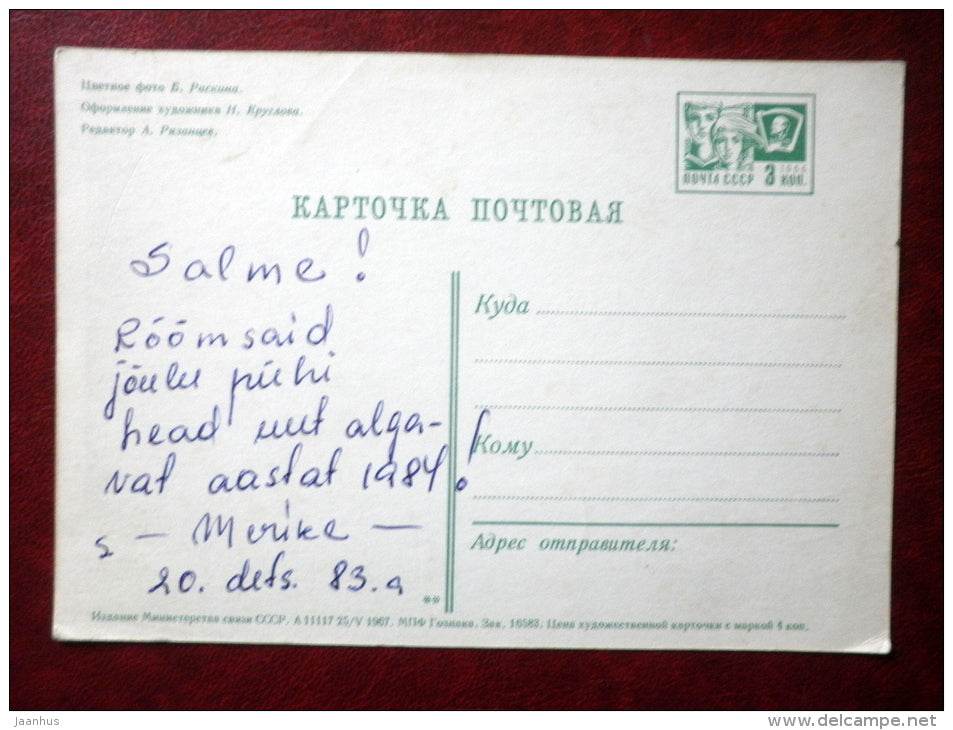 Цветное фото Б. Раскина.
Оформление художника Н. Круглова.
Редактор А. Рязанцев.
1966
ПОЧТА СССР 3 КОП.
КАРТОЧКА ПОЧТОВАЯ
Salme!
Rõõmsaid
jõulu pühi
head uut alga-
vat aastat 1984!
— Merike —
20. dets. 83. a
Куда
Кому
Адрес отправителя:
**
Издание Министерства связи СССР. А 11117 25/V 1967. МПФ Гознака. Зак. 16583. Цена художественной карточки с маркой 4 коп.
jaanhus
www.delcampe.net